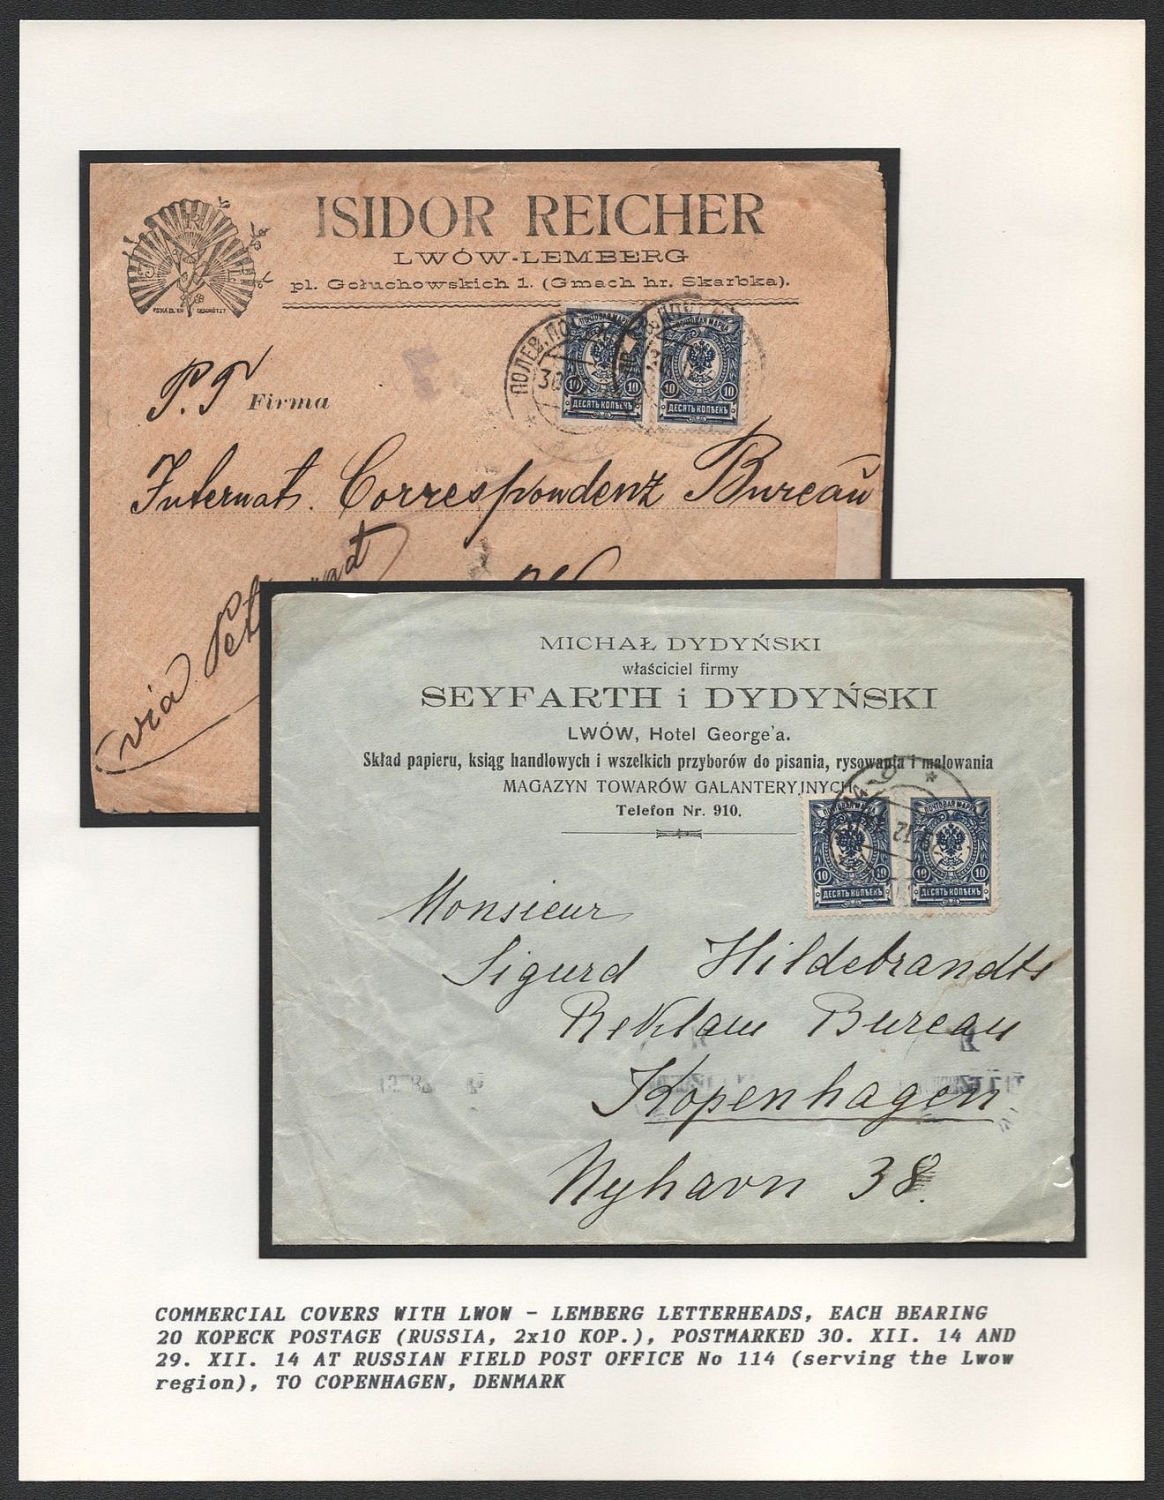 ISIDOR REICHER
LWÓW-LEMBERG
pl. Gołuchowskich 1. (Gmach hr. Skarbka).
ПОЧТОВАЯ МАРКА
ПОЧТОВАЯ МАРКА
ПОЛЕВ. ПО
30
10 10
10 10
ДЕСЯТЬ КОПѢЕКЪ
ДЕСЯТЬ КОПѢЕКЪ
P. T Firma
Internat. Correspondenz Bureau
via
MICHAŁ DYDYŃSKI
właściciel firmy
SEYFARTH i DYDYŃSKI
LWÓW, Hotel George'a.
Skład papieru, ksiąg handlowych i wszelkich przyborów do pisania, rysowania i malowania
MAGAZYN TOWARÓW GALANTERYJNYCH.
Telefon Nr. 910.
ПОЧТОВАЯ МАРКА
ПОЧТОВАЯ МАРКА
10 10
10 10
ДЕСЯТЬ КОПѢЕКЪ
ДЕСЯТЬ КОПѢЕКЪ
Monsieur
Sigurd Hildebrandts
Reklam Bureau
Kopenhagen
Nyhavn 38.
COMMERCIAL COVERS WITH LWOW - LEMBERG LETTERHEADS, EACH BEARING
20 KOPECK POSTAGE (RUSSIA, 2x10 KOP.), POSTMARKED 30. XII. 14 AND
29. XII. 14 AT RUSSIAN FIELD POST OFFICE No 114 (serving the Lwow
region), TO COPENHAGEN, DENMARK